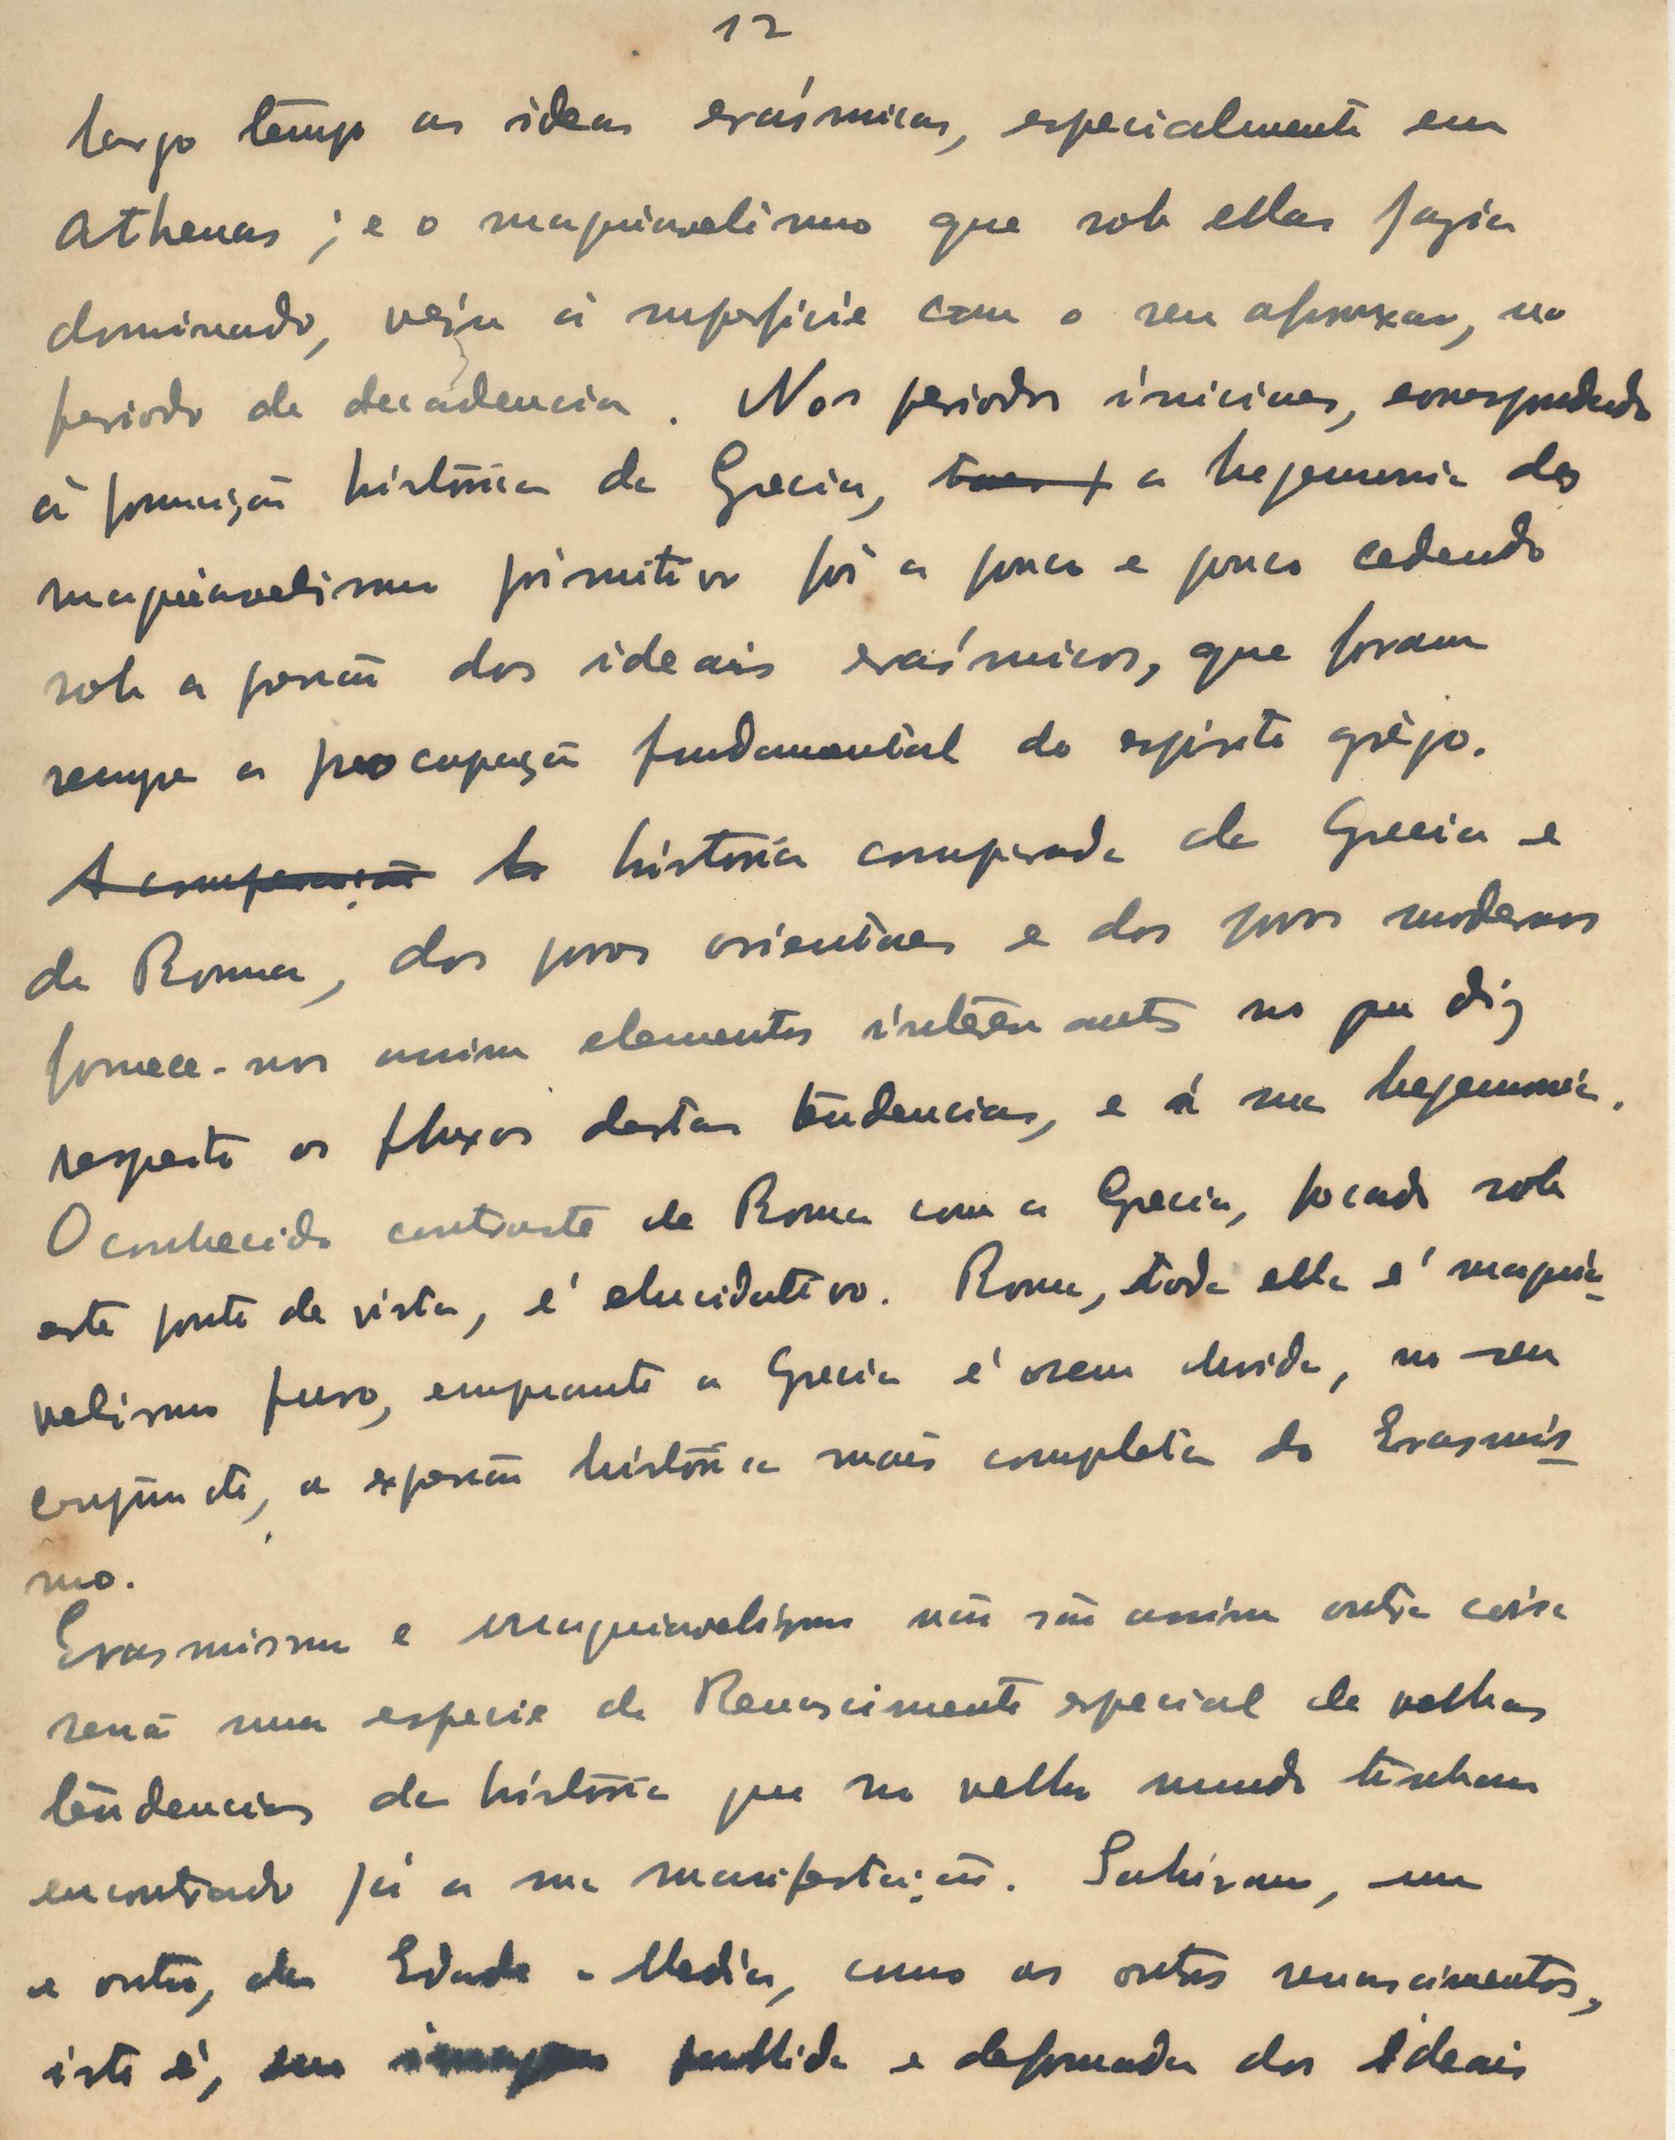 12
largo tempo as ideas erásmicas, especialmente em
Athenas; e o maquiavelismo que sob ellas jazia
dominado, veiu á superficie com o seu afrouxar, no
periodo de decadencia. Nos periodos iniciaes, correspondendo
á formação histórica da Grecia, a hegemonia do
maquiavelismo primitivo foi a pouco e pouco cedendo
sob a pressão dos ideais erásmicos, que foram
sempre a preocupação fundamental do espirito grêgo.
A comparação A história comparada da Grecia e
de Roma, dos povos orientaes e dos povos modernos
fornece-nos assim elementos interessantes no que diz
respeito os fluxos destas tendencias, e á sua hegemonia.
O conhecido contraste de Roma com a Grecia, focado sob
este ponto de vista, é elucidativo. Roma, toda ella é maquia-
velismo puro, emquanto a Grecia é sem duvida, no seu
conjuncto, a expressão histórica mais completa do Erasmis-
mo.
Erasmismo e maquiavelismo não são assim outra coisa
senão uma especie de Renascimento especial de velhas
tendencias da história que no velho mundo tinham
encontrado já a sua manifestação. Sahiram, um
e outro, da Edade-Media, como os outros renascimentos,
isto é, imagem pallida e deformada dos ideais